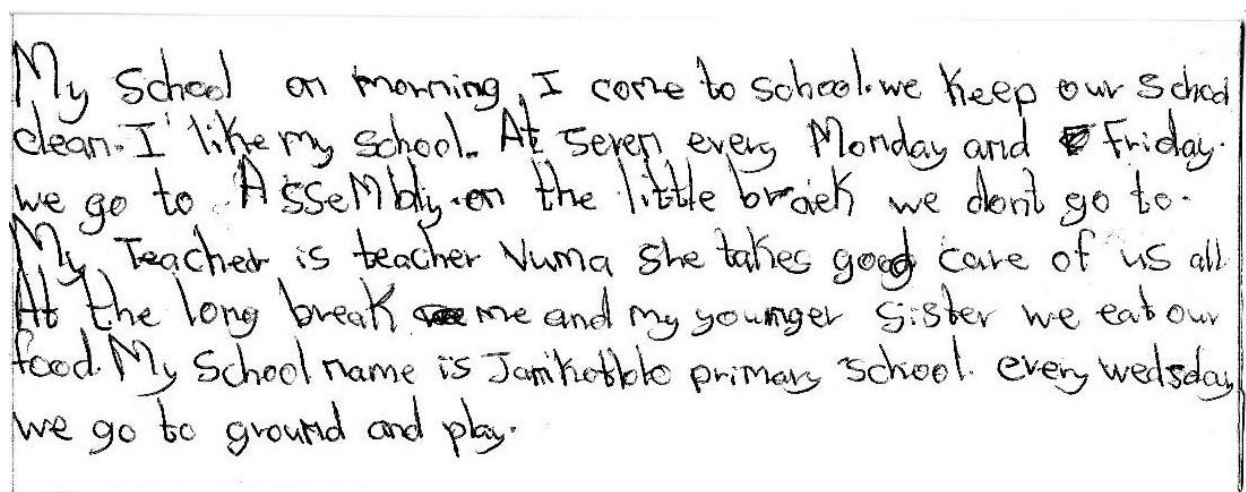 My School on morning, I come to school. we keep our School
clean. I like my school. At seven every Monday and Friday.
we go to AsseMbly. on the little braiek we dont go to.
My Teacher is teacher Vuma she takes good care of us all
At the long break me and my younger Sister we eat our
food. My School name is primary school. every wedsday
we go to ground and play.